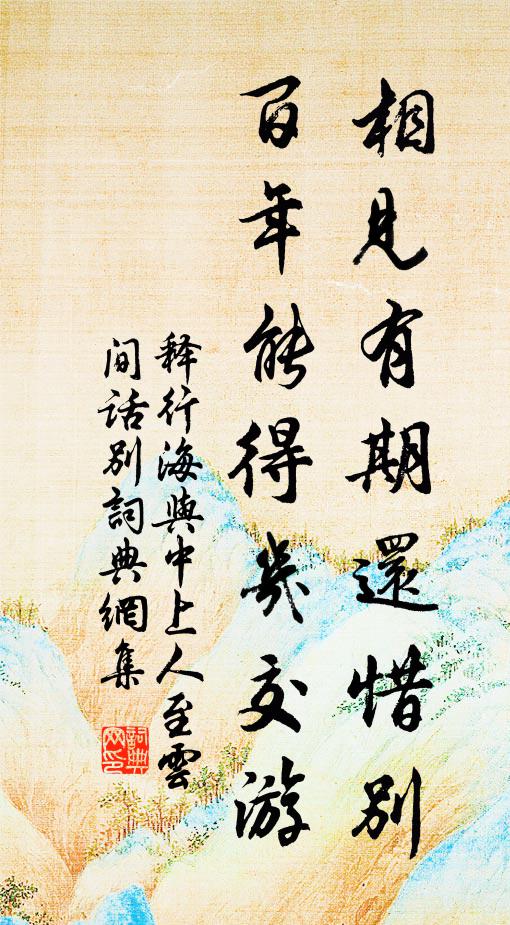 相見有期還惜別
百年能得幾交游
释行海與中上人至雲
间话别詞典網集
詞典
网印